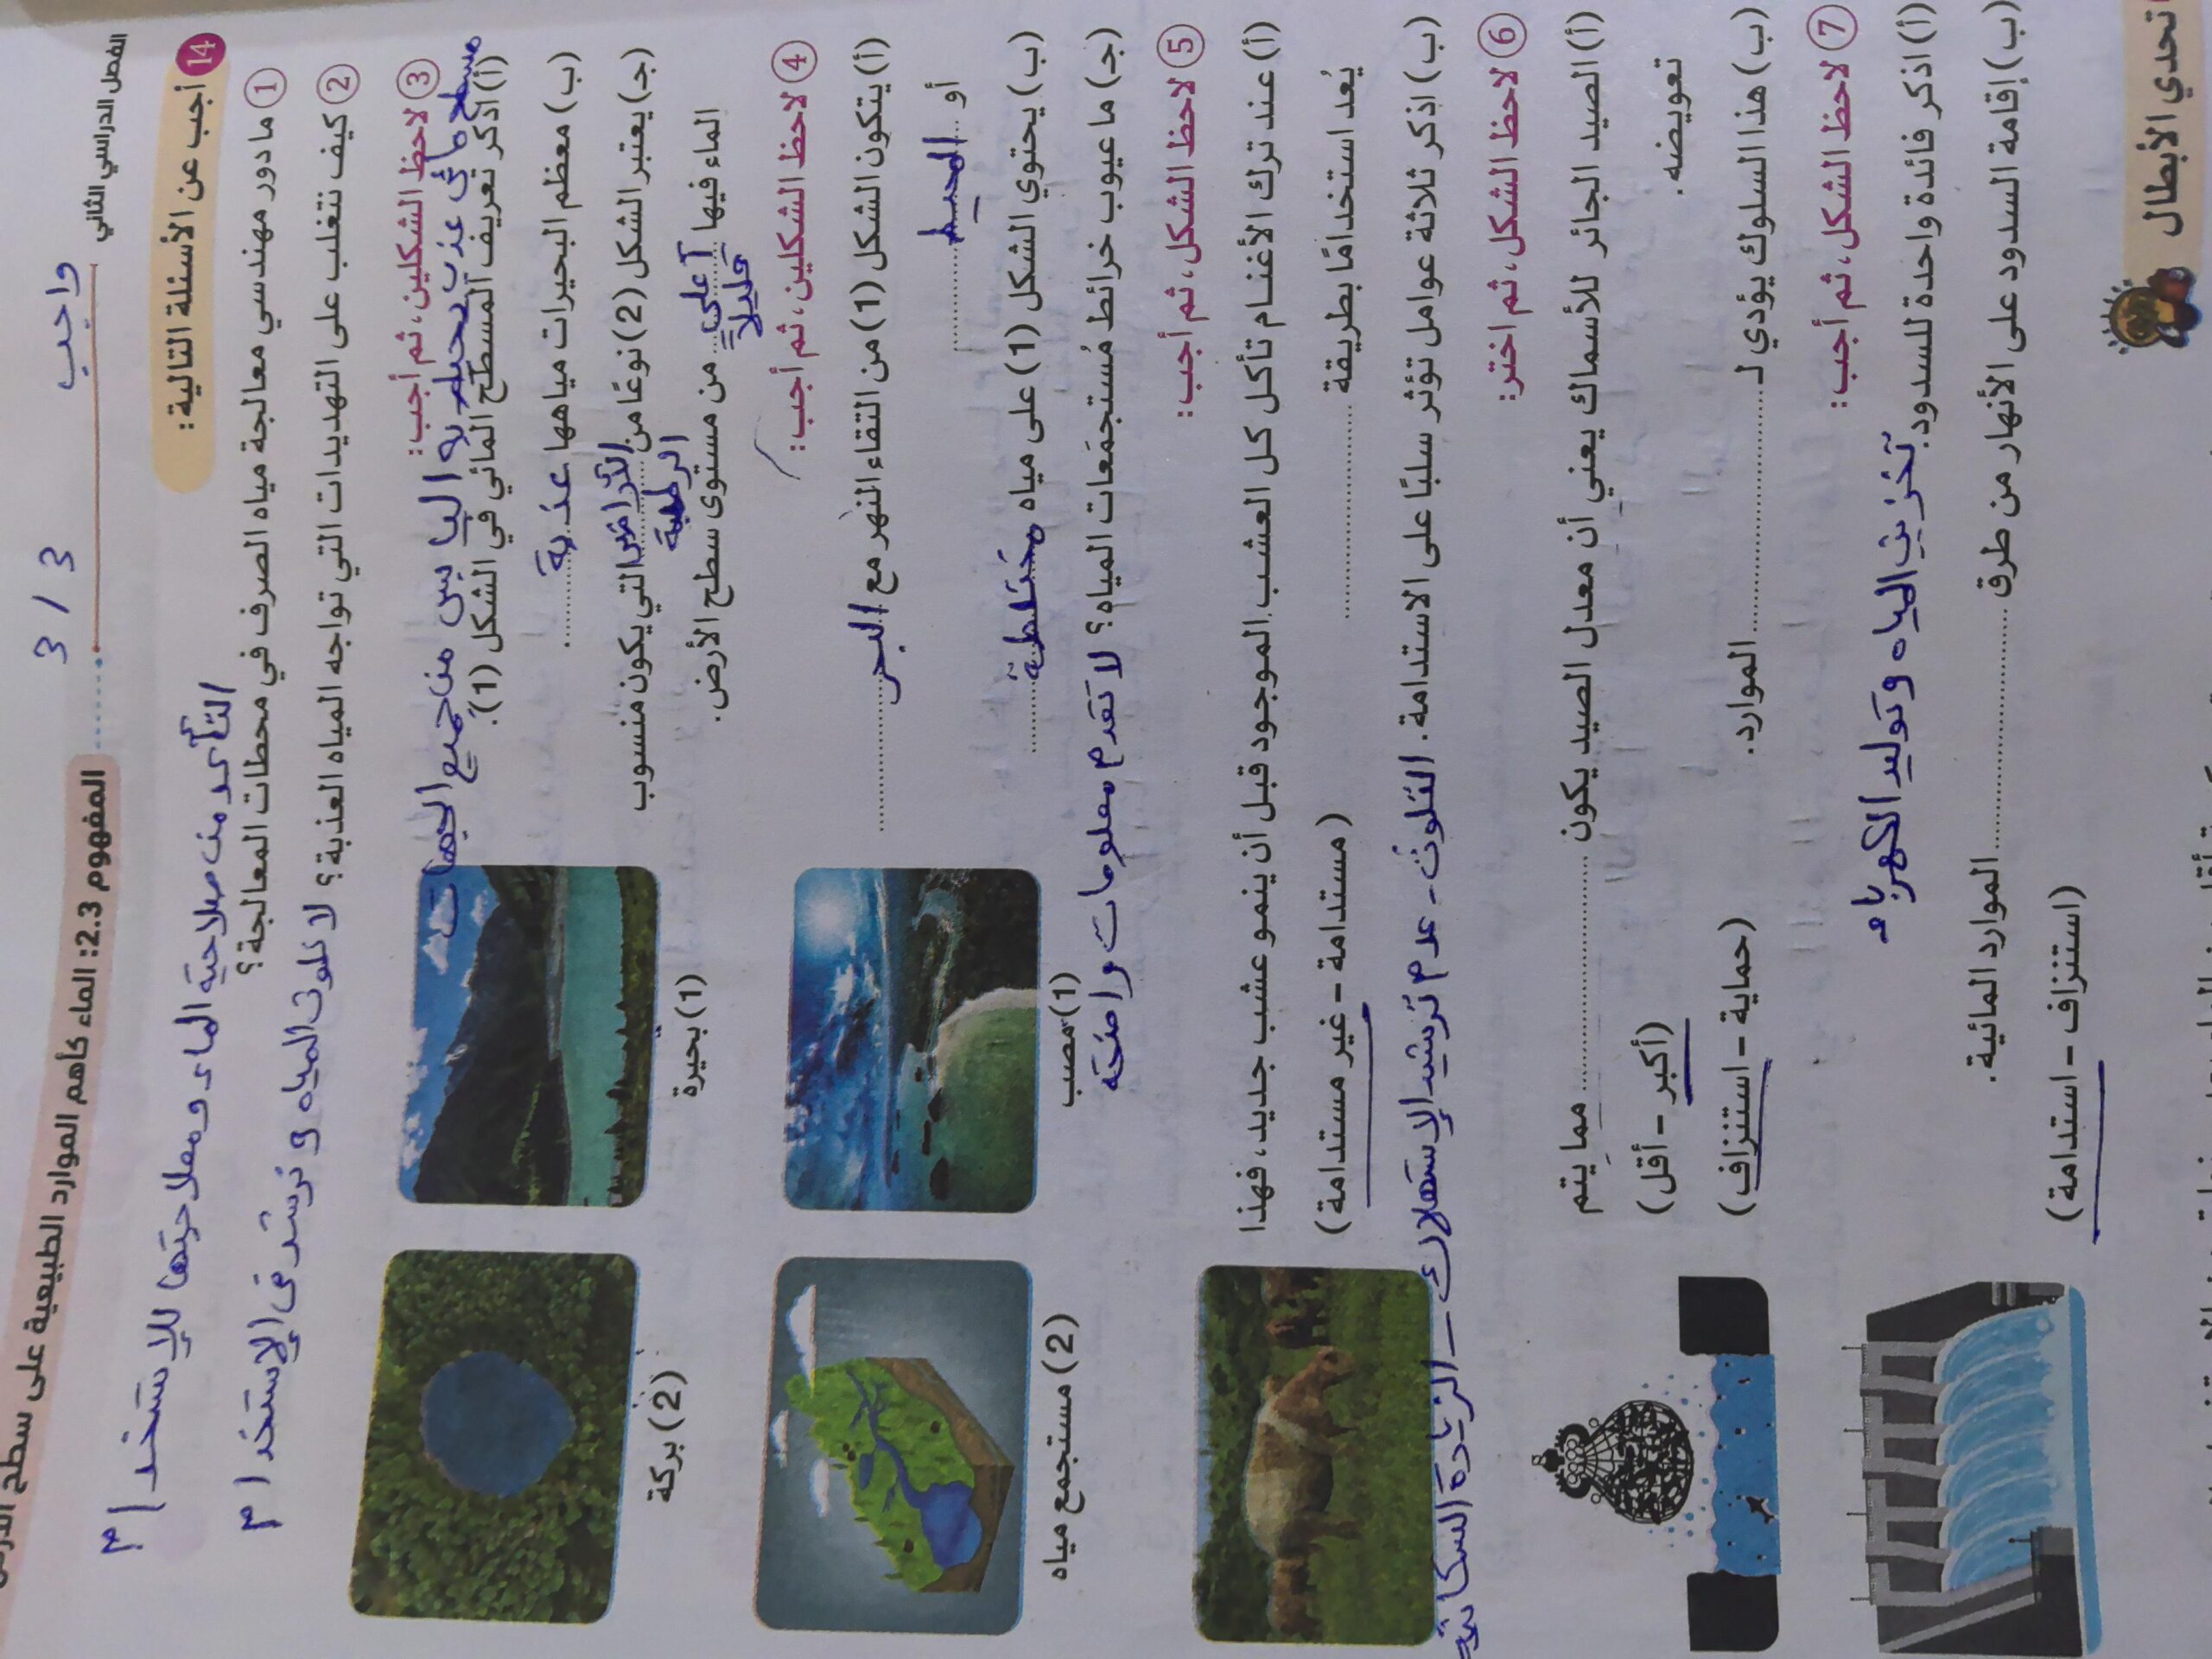 الفصل الدراسي الثاني
واجب
3 / 3
المفهوم 2.3: الماء كأهم الموارد الطبيعية على سطح الأرض
14 أجب عن الأسئلة التالية:
التأكد من صلاحية الماء ومعلاحيتها للإستخدام
1 ما دور مهندسي معالجة مياه الصرف في محطات المعالجة؟
2 كيف نتغلب على التهديدات التي تواجه المياه العذبة؟ لا نلوث المياه و نرشد في الإستخدام
3 لاحظ الشكلين، ثم أجب:
مسطح مائي عذب يحيط به اليابس من جميع الجهات
(أ) اذكر تعريف المسطح المائي في الشكل (1).
(ب) معظم البحيرات مياهها عذبة
(جـ) يعتبر الشكل (2) نوعًا من الأراضي الرطبة التي يكون منسوب
الماء فيها أعلى قليلاً من مستوى سطح الأرض.
(1) بحيرة
(2) بركة
4 لاحظ الشكلين، ثم أجب:
(أ) يتكون الشكل (1) من التقاء النهر مع البحر
أو المحيط
(ب) يحتوي الشكل (1) على مياه مختلطة
(جـ) ما عيوب خرائط مُستجمَعات المياه؟ لا تقدم معلومات واضحة
(1) مصب
(2) مستجمع مياه
5 لاحظ الشكل، ثم أجب:
(أ) عند ترك الأغنام تأكل كل العشب الموجود قبل أن ينمو عشب جديد، فهذا
يُعد استخدامًا بطريقة ............... (مستدامة – غير مستدامة)
(ب) اذكر ثلاثة عوامل تؤثر سلبًا على الاستدامة. التلوث - عدم ترشيد الإستهلاك - الزيادة السكانية
6 لاحظ الشكل، ثم اختر:
(أ) الصيد الجائر للأسماك يعني أن معدل الصيد يكون ............... مما يتم
تعويضه. (أكبر – أقل)
(ب) هذا السلوك يؤدي لـ ............... الموارد. (حماية – استنزاف)
7 لاحظ الشكل، ثم أجب:
(أ) اذكر فائدة واحدة للسدود. تخزين المياه وتوليد الكهرباء
(ب) إقامة السدود على الأنهار من طرق ............... الموارد المائية. (استنزاف – استدامة)
تحدي الأبطال